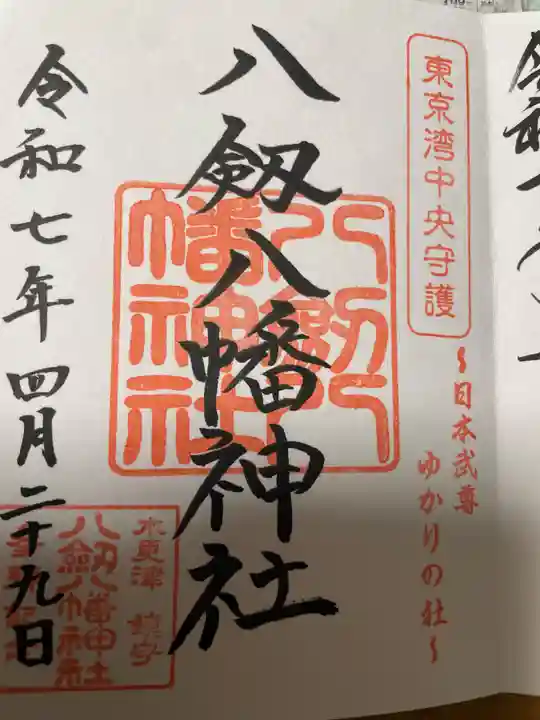 東京湾中央守護
~日本武尊
ゆかりの社~
八剱八幡神社
八剱八幡神社
木更津 鎮守
八剱八幡神社
令和七年四月二十九日